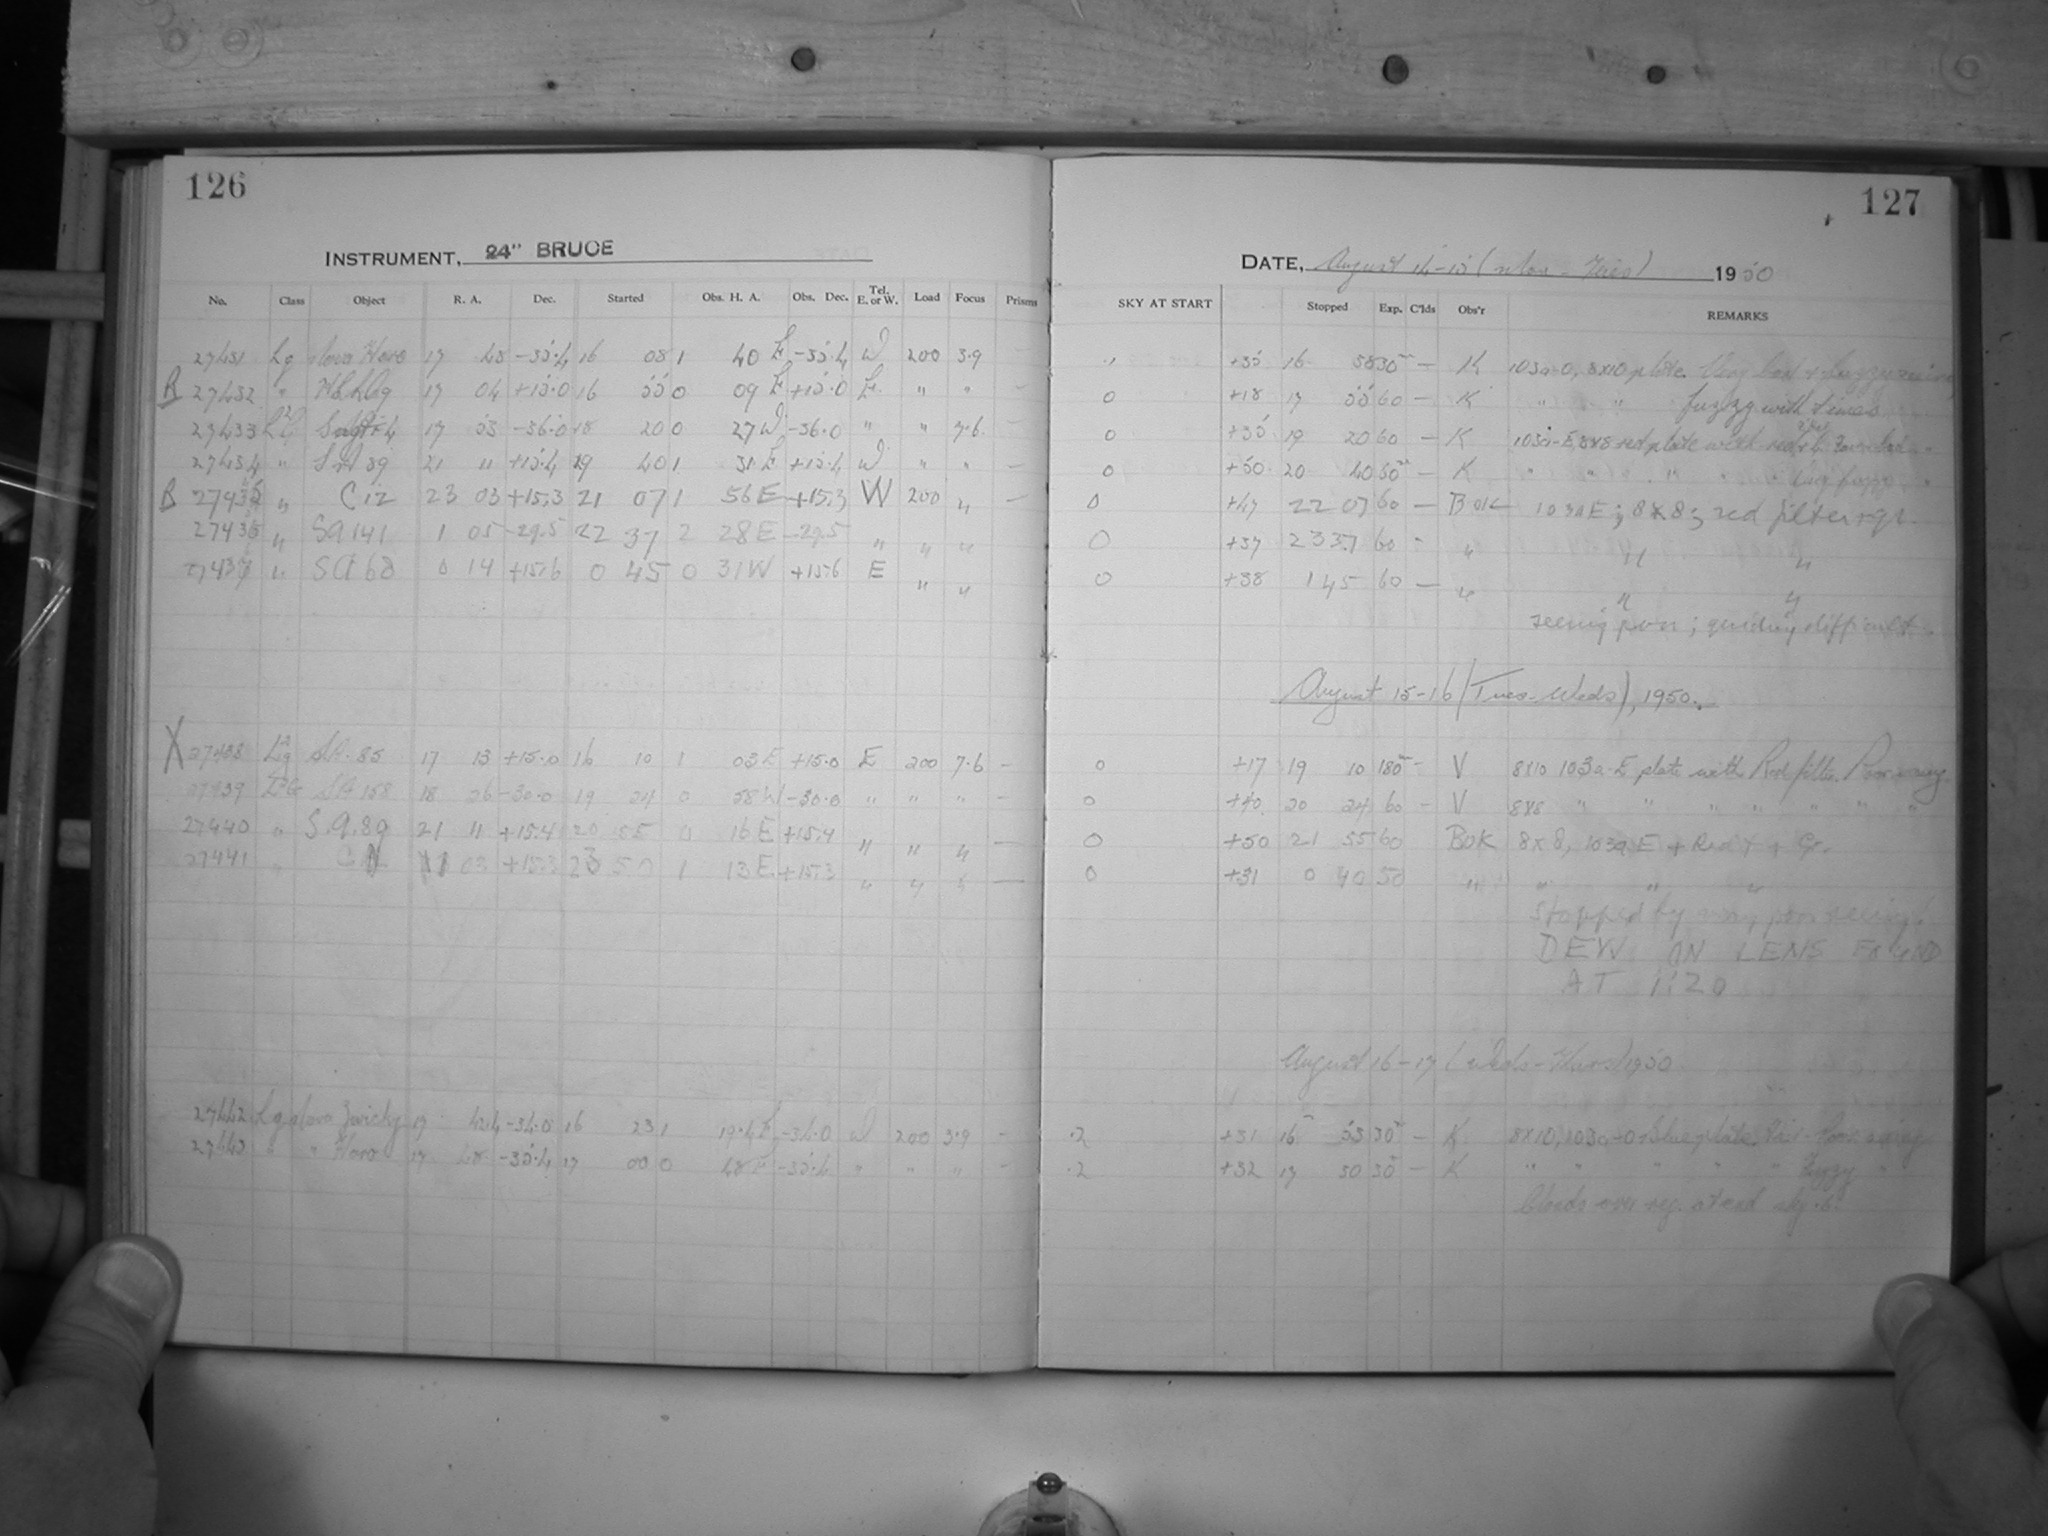 126
127
INSTRUMENT, 24" BRUCE
DATE, August 14-15 (Mon - Tues) 1950
No. Class Object R. A. Dec. Started Obs. H. A. Obs. Dec. Tel. E. or W. Load Focus Prisms SKY AT START Stopped Exp. C'lds Obs'r REMARKS
27431 Lg Nova 17 48 -35.4 16 08 1 40 E -35.4 W 200 7.9 - +35 16 58 30 - K 103a-O, 8x10 plate. Very
B 27432 " 17 04 +15.0 16 55 0 09 E +15.0 E " " - 0 +18 17 55 60 - K " " " fuzzy with times
27433 17 53 -36.0 18 20 0 27 W -36.0 " " 7.6 - 0 +35 19 20 60 - K 103a-E, 8x8 red plate with red
27434 " SA 89 21 11 +15.4 19 40 1 31 E +15.4 W " " - 0 +50 20 40 60 - K " " " "
B 27435 " C 12 23 03 +15.3 21 07 1 56 E +15.3 W 200 " - 0 +47 22 07 60 - BOK 103aE; 8x8; red filter + gr.
27436 " SA 141 1 05 -29.5 22 37 2 28 E -29.5 " " " 0 +37 23 37 60 - " " "
27437 " SA 68 0 14 +15.6 0 45 0 31 W +15.6 E " " 0 +38 1 45 60 - " " "
seeing poor; guiding difficult.
August 15-16 (Tues-Weds), 1950.
X 27438 SA. 85 17 13 +15.0 16 10 1 03 E +15.0 E 200 7.6 - 0 +17 19 10 180 - V 8x10 103a-E plate with Red filter. Poor seeing.
27439 SA 158 18 26 -30.0 19 24 0 58 W -30.0 " " " - 0 +40 20 24 60 - V 8x8 " " " " " " "
27440 " S.A. 89 21 11 +15.4 20 55 0 16 E +15.4 " " " - 0 +50 21 55 60 BOK 8x8, 103aE + Red + Gr.
27441 " 03 +15.3 23 50 1 13 E +15.3 " " " - 0 +31 0 40 50 " " " "
Stopped by very poor seeing!
DEW ON LENS FOUND
AT 1:20
August 16-17 (Weds-Thurs) 1950
27442 Lg Nova Zwicky 17 42.4 -34.0 16 23 1 19.4 E -34.0 W 200 7.9 - .2 +31 16 53 30 - K 8x10, 103a-O Blue plate. Poor seeing
27443 " " 17 48 -35.4 17 00 0 48 E -35.4 " " " - .2 +32 17 30 30 - K " " " " " Fuzzy "
Clouds over reg. at end sky .6.